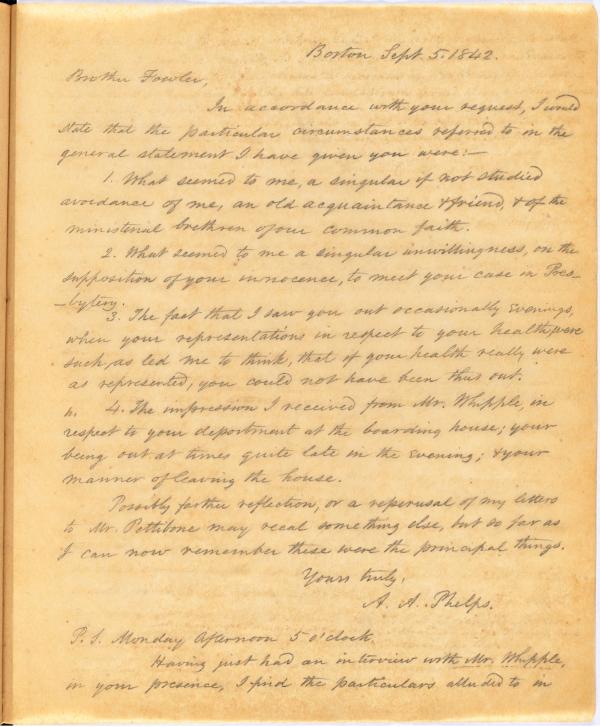 Boston Sept. 5. 1842.
Brother Fowler,
In accordance with your request, I would
state that the particular circumstances referred to in the
general statement I have given you were:—
1. What seemed to me, a singular if not studied
avoidance of me, an old acquaintance & friend, & of the
ministerial brethren of our common faith.
2. What seemed to me a singular unwillingness, on the
supposition of your innocence, to meet your case in Pres-
-bytery.
3. The fact that I saw you out occasionally evenings,
when your representations in respect to your health, were
such, as led me to think, that if your health really were
as represented, you could not have been thus out.
4. The impression I received from Mr. Whipple, in
respect to your deportment at the boarding house; your
being out at times quite late in the evening; & your
manner of leaving the house.
Possibly farther reflection, or a reperusal of my letters
to Mr. Pettibone may recal something else, but so far as
I can now remember these were the principal things.
Yours truly,
A. A. Phelps.
P. S. Monday afternoon 5 o'clock.
Having just had an interview with Mr. Whipple,
in your presence, I find the particulars alluded to in